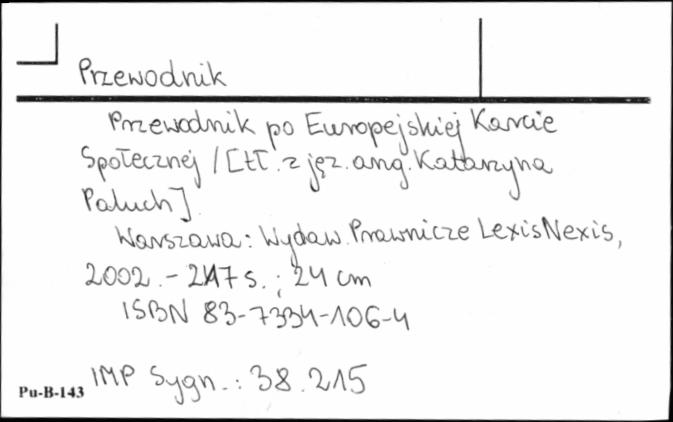 Przewodnik
Przewodnik po Europejskiej Karcie
Społecznej / [tł. z jęz. ang. Katarzyna
Paluch].
Warszawa: Wydaw. Prawnicze LexisNexis,
2002. - 247 s. ; 24 cm
ISBN 83-7334-106-4
IMP Sygn.: 38.215
Pu-B-143